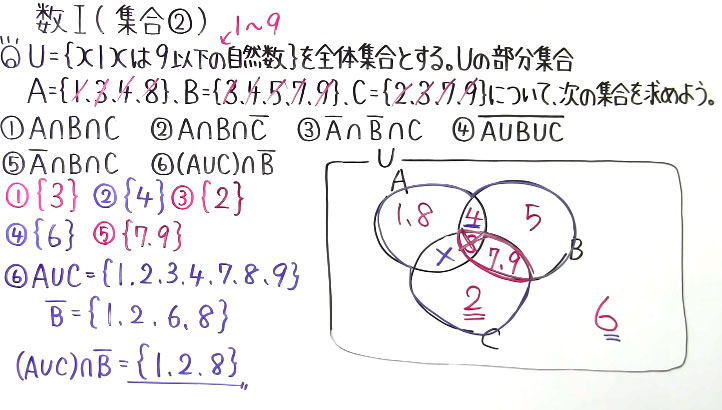 数Ⅰ(集合②)
1~9
◎U={x|xは9以下の自然数}を全体集合とする。Uの部分集合
A={1.3.4.8}、B={3.4.5.7.9}、C={2.3.7.9}について、次の集合を求めよう。
①A∩B∩C ②A∩B∩C̅ ③A̅∩B̅∩C ④A̅∪̅B̅∪̅C̅
⑤A̅∩B∩C ⑥(A∪C)∩B̅
①{3} ②{4} ③{2}
④{6} ⑤{7.9}
⑥A∪C={1.2.3.4.7.8.9}
B̅={1.2.6.8}
(A∪C)∩B̅={1.2.8}
U
A
1.8 4 5
3
× 7.9 B
2
6
C